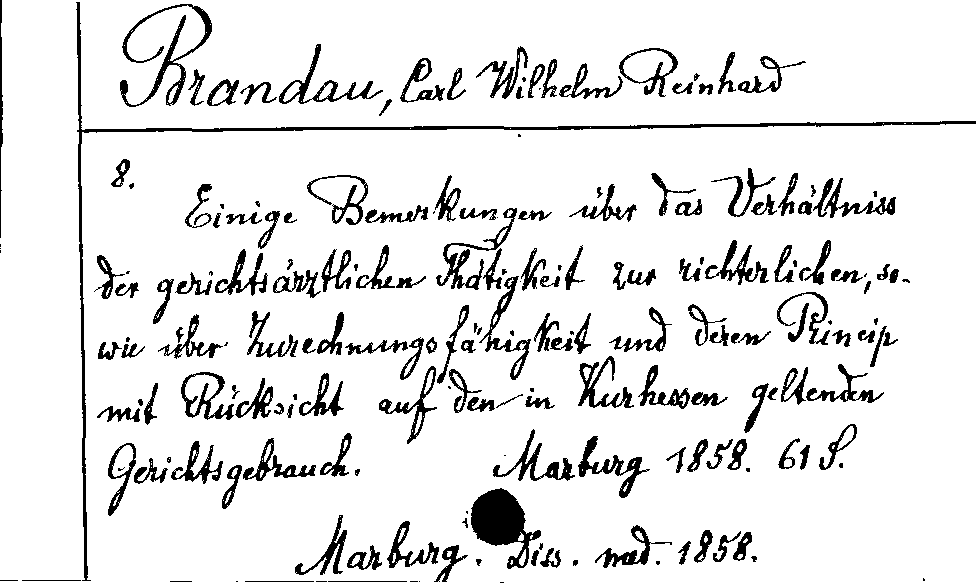 Brandau, Carl Wilhelm Reinhard
8.
Einige Bemerkungen über das Verhältniss
der gerichtsärztlichen Thätigkeit zur richterlichen, so-
wie über Zurechnungsfähigkeit und deren Princip
mit Rücksicht auf den in Kurhessen geltenden
Gerichtsgebrauch. Marburg 1858. 61 S.
Marburg. Diss. med. 1858.